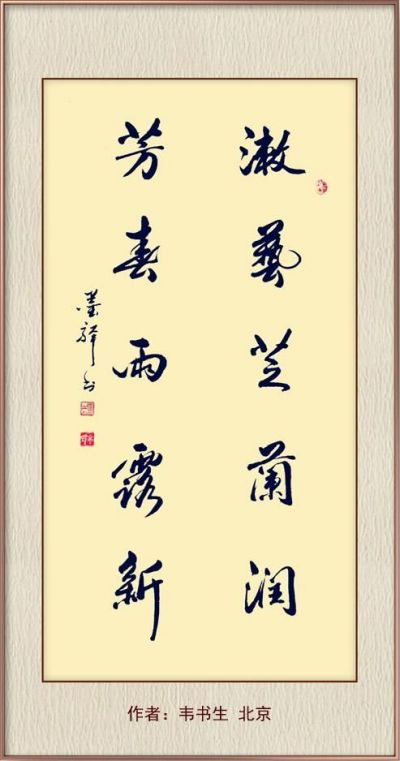 漱藝芝蘭润
芳春雨露新
墨驿书
作者：韦书生 北京